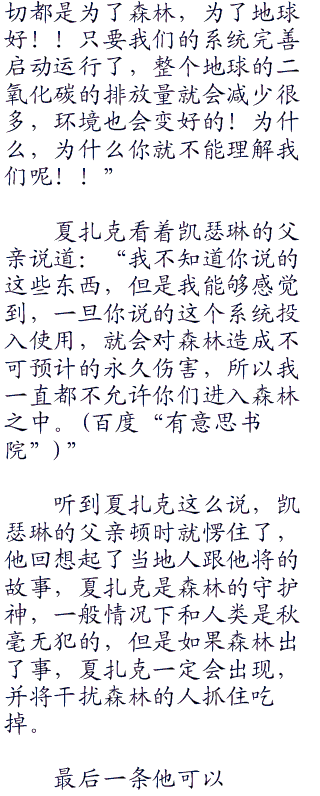 切都是为了森林，为了地球
好！！只要我们的系统完善
启动运行了，整个地球的二
氧化碳的排放量就会减少很
多，环境也会变好的！为什
么，为什么你就不能理解我
们呢！！”
夏扎克看着凯瑟琳的父
亲说道：“我不知道你说的
这些东西，但是我能够感觉
到，一旦你说的这个系统投
入使用，就会对森林造成不
可预计的永久伤害，所以我
一直都不允许你们进入森林
之中。(百度“有意思书
院”)”
听到夏扎克这么说，凯
瑟琳的父亲顿时就愣住了，
他回想起了当地人跟他将的
故事，夏扎克是森林的守护
神，一般情况下和人类是秋
毫无犯的，但是如果森林出
了事，夏扎克一定会出现，
并将干扰森林的人抓住吃
掉。
最后一条他可以